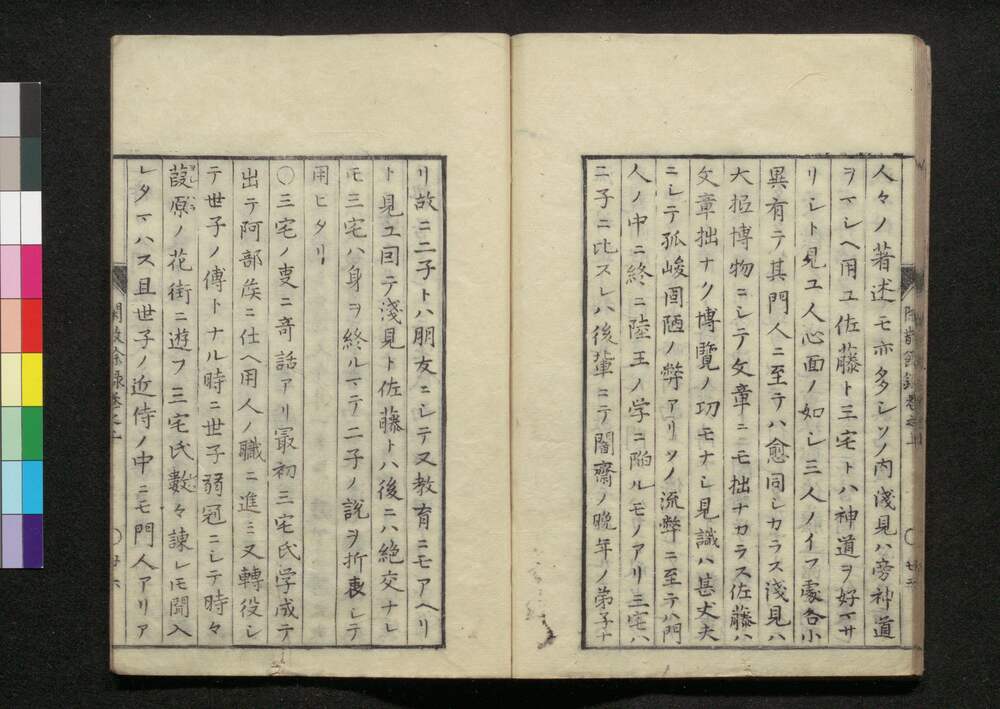 人々ノ著述モ亦多シソノ内淺見ハ旁神道
ヲマシヘ用ユ佐藤ト三宅トハ神道ヲ好マサ
リシト見ユ人心面ノ如シ三人ノイフ處各小
異有テ其門人ニ至テハ愈同シカラス淺見ハ
大抵博物ニシテ文章ニモ拙ナカラス佐藤ハ
文章拙ナク博覽ノ功モナシ見識ハ甚丈夫
ニシテ孤峻固陋ノ弊アリソノ流弊ニ至テハ門
人ノ中ニ終ニ陸王ノ学ニ陷ルモノアリ三宅ハ
二子ニ比スレハ後輩ニテ闇齋ノ晩年ノ弟子ナ
リ故ニ二子トハ朋友ニシテ又教育ニモアヘリ
ト見ユ回テ淺見ト佐藤トハ後ニハ絶交ナレ
モ三宅ハ身ヲ終ルマテ二子ノ説ヲ折衷シテ
用ヒタリ
〇三宅ノ叓ニ奇話アリ冣初三宅氏学成テ
出テ阿部矦ニ仕ヘ用人ノ職ニ進ミ又轉役シ
テ世子ノ傅トナル時ニ世子弱冠ニシテ時々
葭原ノ花街ニ遊フ三宅氏數々諫レモ聞入
レタマハス且世子ノ近侍ノ中ニモ門人アリア